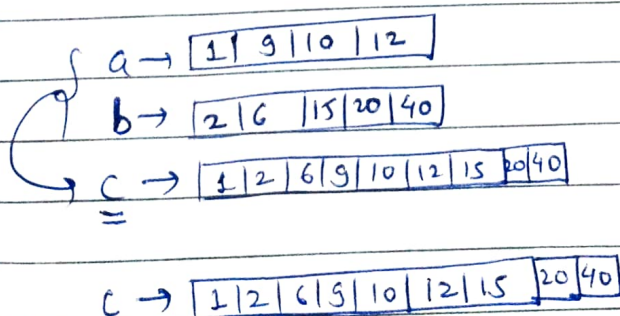 a → 1 | 9 | 10 | 12
b → 2 | 6 | 15 | 20 | 40
c → 1 | 2 | 6 | 9 | 10 | 12 | 15 | 20 | 40
c → 1 | 2 | 6 | 9 | 10 | 12 | 15 | 20 | 40